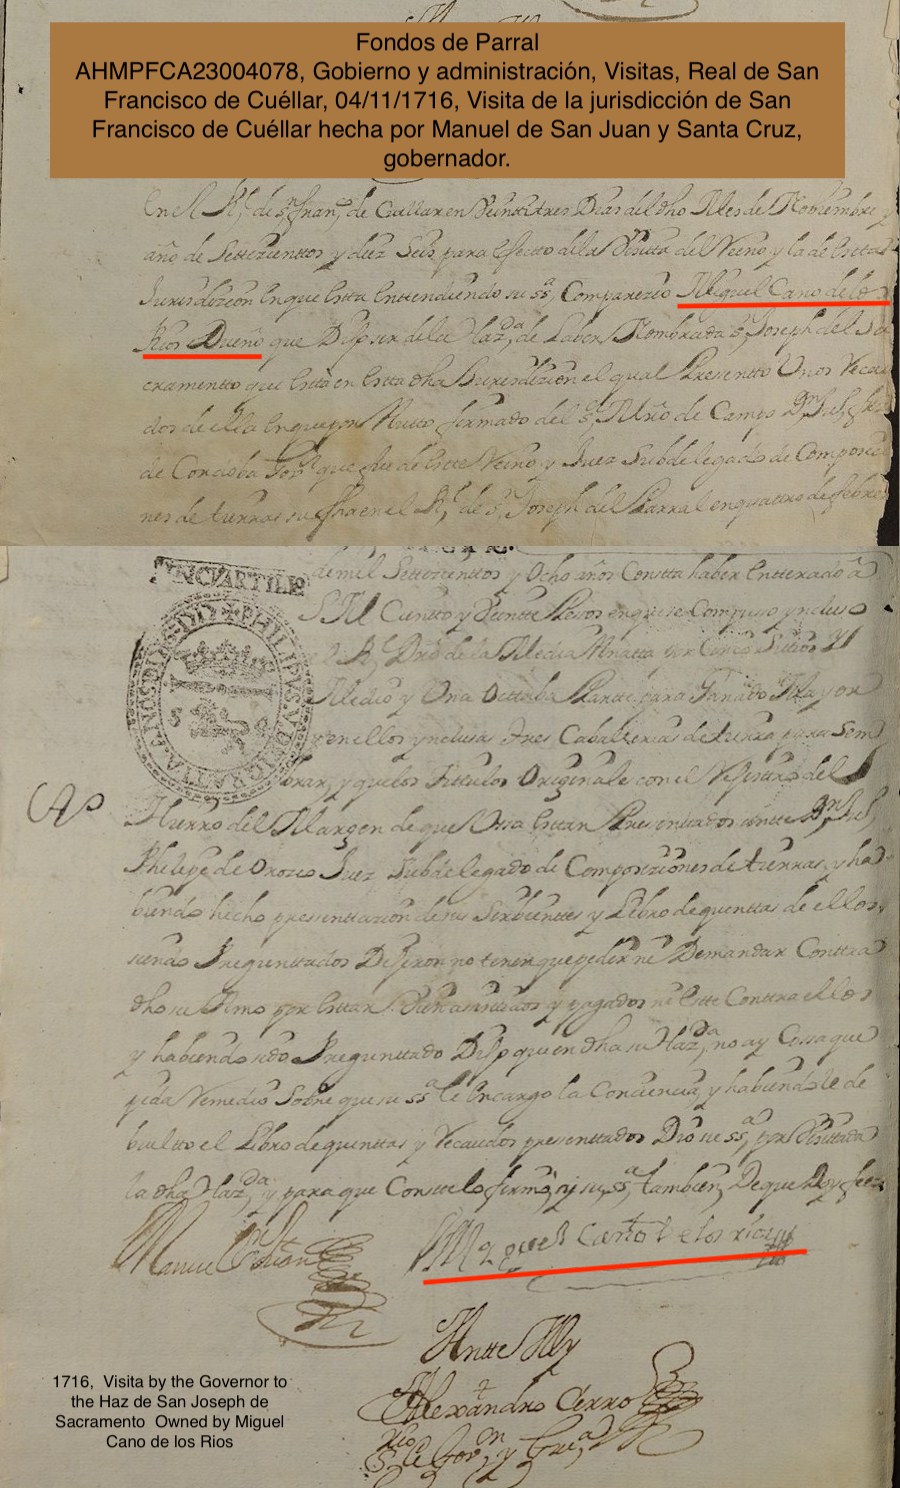 Fondos de Parral
AHMPFCA23004078, Gobierno y administración, Visitas, Real de San
Francisco de Cuéllar, 04/11/1716, Visita de la jurisdicción de San
Francisco de Cuéllar hecha por Manuel de San Juan y Santa Cruz,
gobernador.
En el Rl. de sn. Franco. de Cuellar en Veintitres Dias del dho Mes de Nobiembre y
año de Settezienttos y diez Seis, para Efecto de la Visita del Reino y la de Estta
Jurisdizion en que Estta Enttendiendo su ssa. Comparezio Miguel Cano de los
Rios Dueño que Dijo ser de la Hazda. de Labor Nombrada Sn. Joseph del Sa
cramentto que Estta en Estta dha Jurisdizion el qual Presentto Unos Recau
dos de ella En que por Autto firmado del Sr. Mro de Campo Dn. Juo. frz
de Cordoba Govr. que fue de Estte Reino y Juez Subdelegado de Composizio
nes de tierras su fha en el Rl. de Sn. Joseph del Parral en quattro de febre
de mil Settezienttos y Ocho años Constta haber Entterado a
S. M. Cientto y Veintte Pesos en que se Compuso yncluso
el Rl. Dro de la Media Anatta por Cinco Sittios Y
Medio y Una Octtaba Partte para Ganado Mayor
y en ellos ynclusas tres Caballerias de tierra para Sem
brar, y que los Tittulos Originales con el Rejisttro del
Hierro del Margen de que Ussa Esttan Presenttados antte Dn. Juo.
Phelipe de Orozco Juez Subdelegado de Composiziones de tierras, y ha
biendo hecho presenttazion de sus Serbienttes y Libro de quenttas de ellos,
siendo Pregunttados Dijeron no tener que pedir ni Demandar Conttra
dho su Amo por Esttar Bien asisttidos y pagados ni Estte Conttra ellos
y habiendo sido Pregunttado Dijo que en dha su Hazda. no ay Cossa que
pida Remedio Sobre que su ssa. le Encargo la Conciencia, y habiendole de
bueltto el Libro de quenttas y Recaudos presenttados Dio su ssa. por Visittada
la dha Hazda. y para que Constte lo firmo, y su ssa. tambien, De que Doy fee
Manuel Sn. Juan
Miguel Cano de los rios
Antte My
Alexandro Cerro
Sno. de Govon. y Grra.
1716, Visita by the Governor to
the Haz de San Joseph de
Sacramento Owned by Miguel
Cano de los Rios